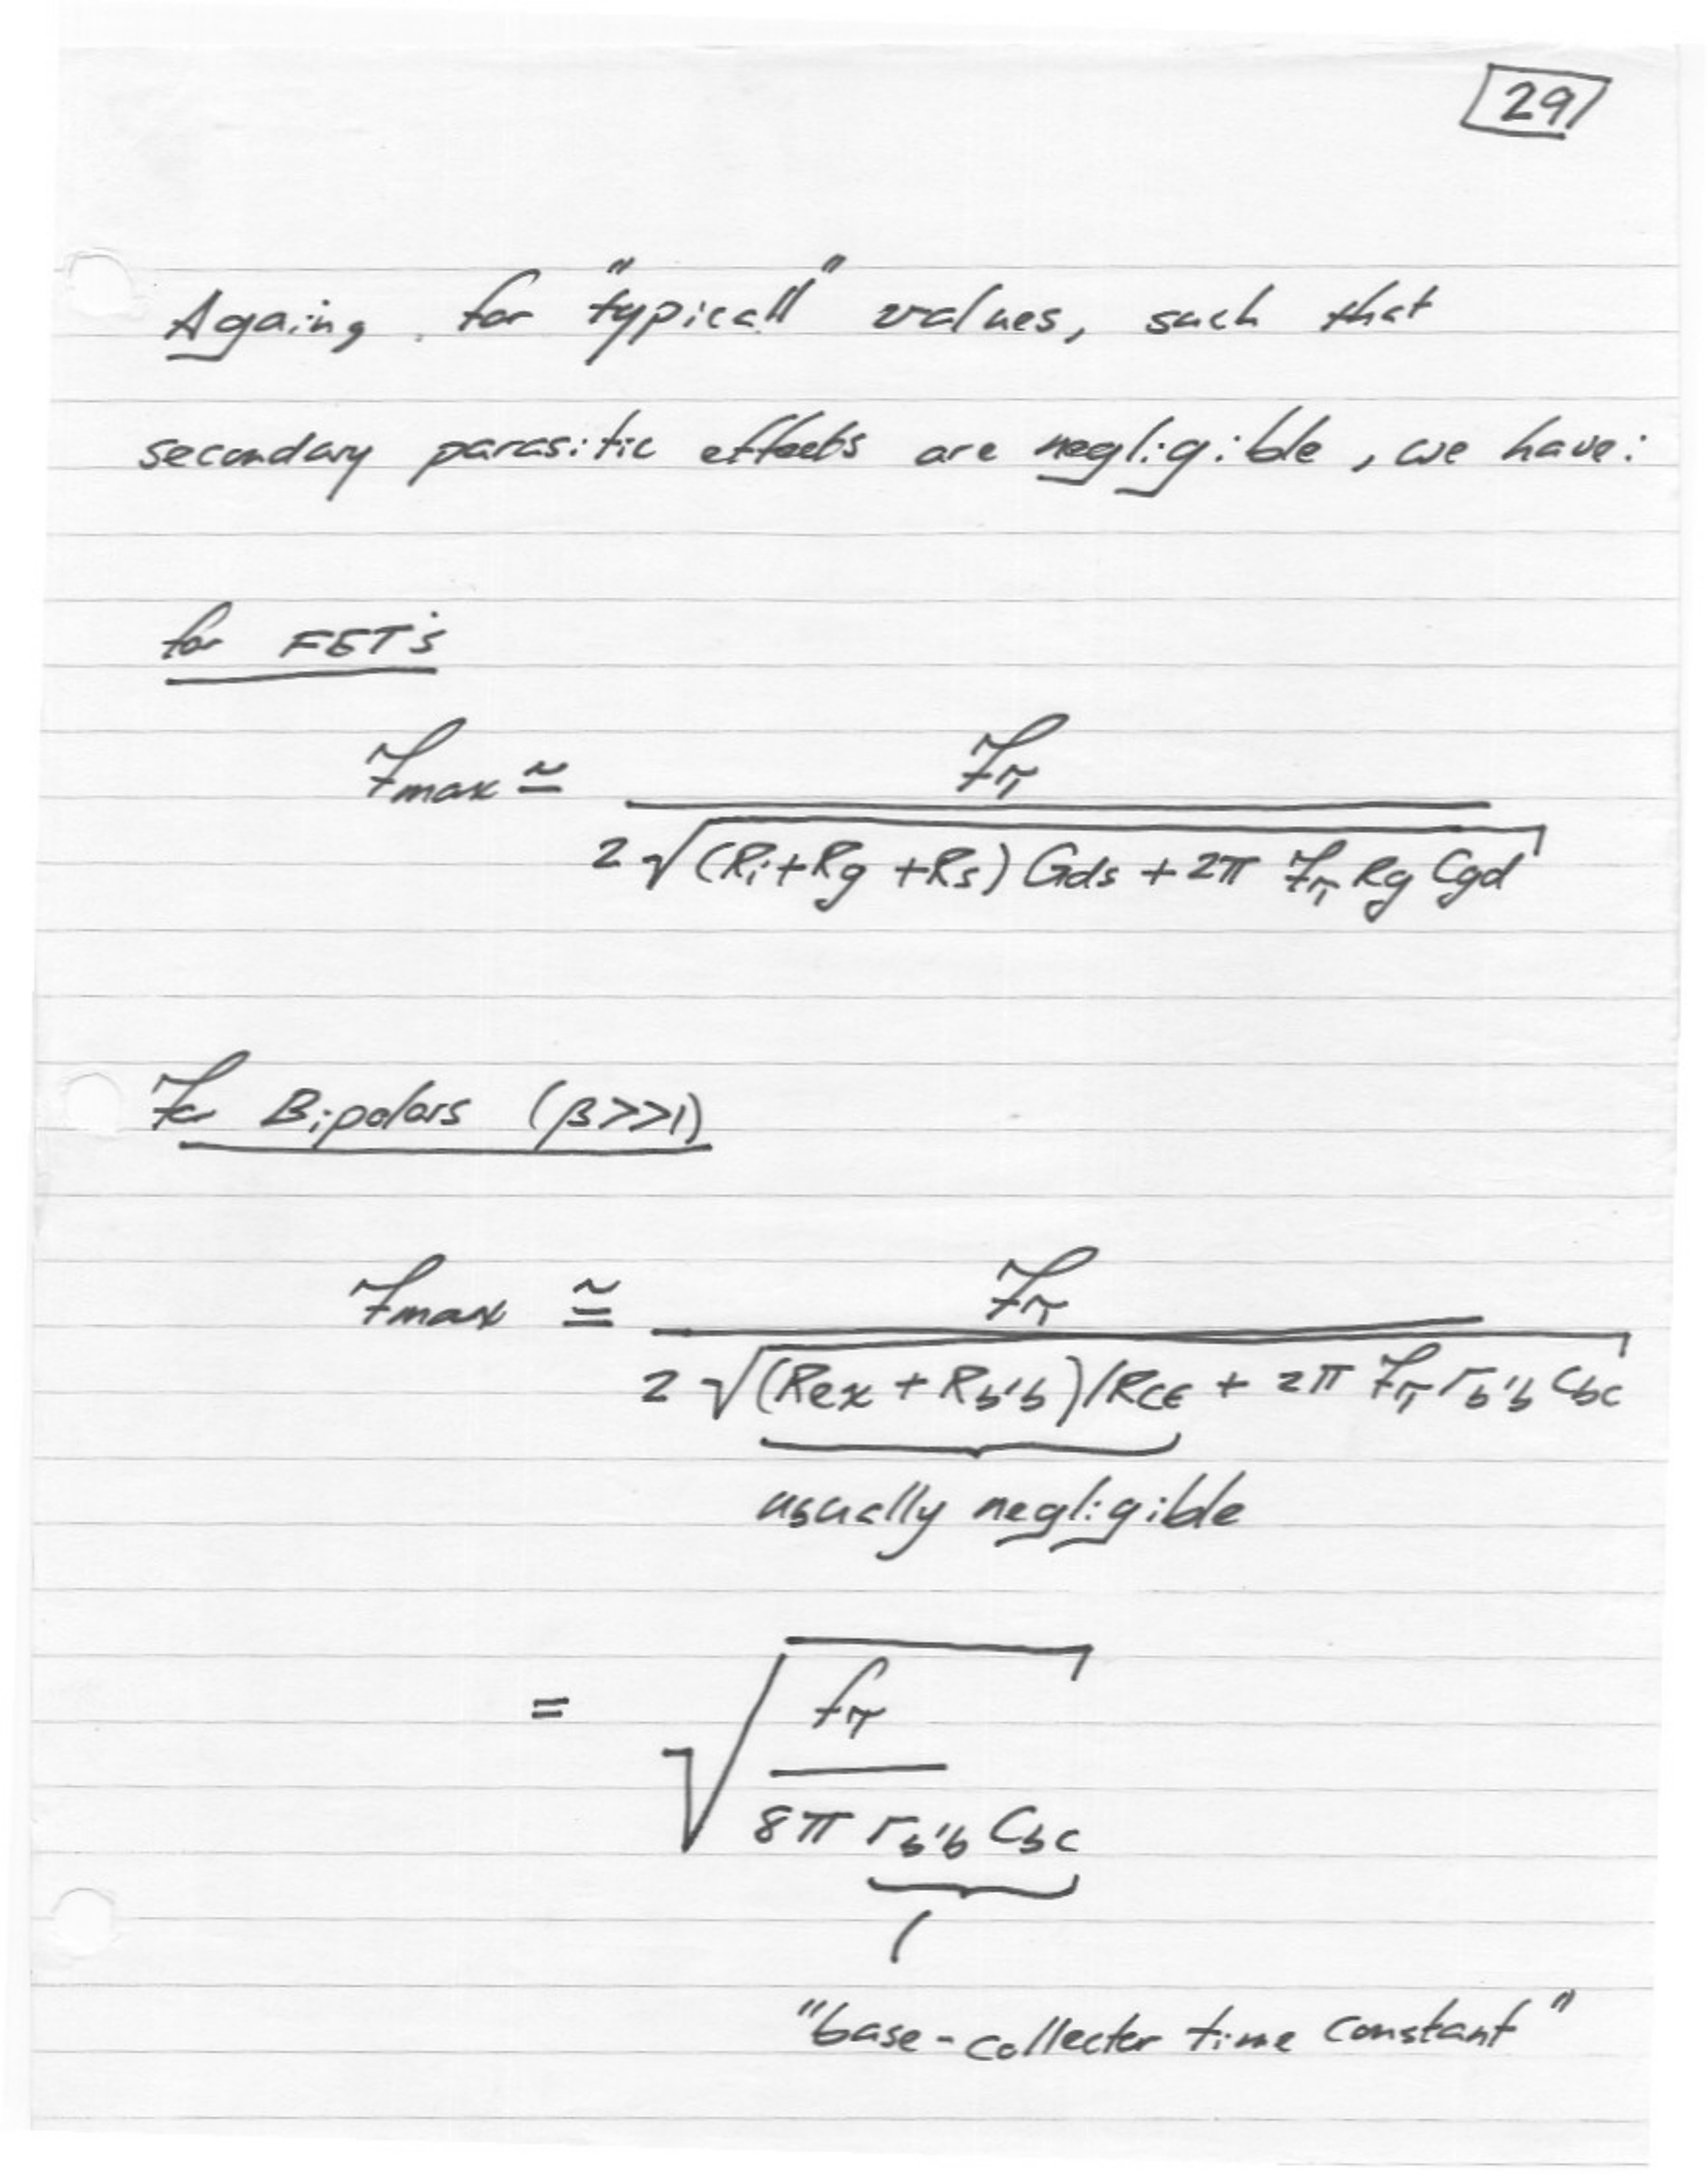 29
Againg, for "typicall" values, such that
secondary parasitic effects are negligible, we have:
for FET's
fmax ≅ fτ / 2√((Ri+Rg+Rs) Gds + 2π fτ Rg Cgd)
For Bipolars (β>>1)
fmax ≅ fτ / 2√((Rex + Rb'b)/RCE + 2π fτ rb'b Cbc)
usually negligible
= √(fτ / 8π rb'b Cbc)
"base-collecter time constant"